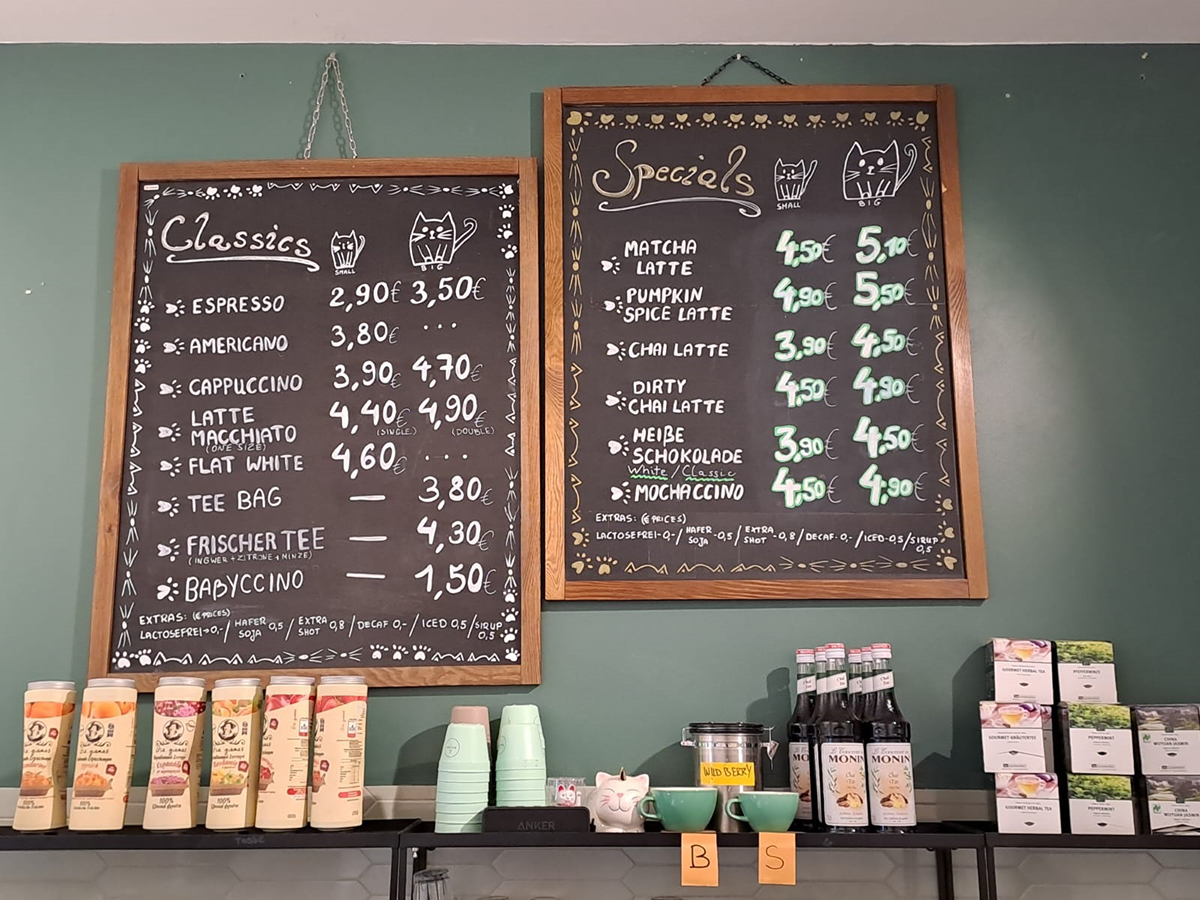 Classics
SMALL
BIG
ESPRESSO 2,90€ 3,50€
AMERICANO 3,80€ ...
CAPPUCCINO 3,90€ 4,70€
LATTE
MACCHIATO 4,40€ 4,90€
(ONE SIZE) (SINGLE) (DOUBLE)
FLAT WHITE 4,60€ ...
TEE BAG — 3,80€
FRISCHER TEE — 4,30€
(INGWER + ZITRONE + MINZE)
BABYCCINO — 1,50€
EXTRAS: (€ PRICES)
LACTOSEFREI→0,-/ HAFER SOJA 0,5 / EXTRA SHOT 0,8 / DECAF 0,- / ICED 0,5 / SIRUP 0,5
Specials
SMALL
BIG
MATCHA
LATTE 4,50€ 5,10€
PUMPKIN
SPICE LATTE 4,90€ 5,50€
CHAI LATTE 3,90€ 4,50€
DIRTY
CHAI LATTE 4,50€ 4,90€
HEIßE
SCHOKOLADE 3,90€ 4,50€
White / Classic
MOCHACCINO 4,50€ 4,90€
EXTRAS: (€ PRICES)
LACTOSEFREI-0,-/ HAFER SOJA -0,5 / EXTRA SHOT -0,8 / DECAF-0,- / ICED-0,5 / SIRUP 0,5
100%
100%
100%
ANKER
WILD BERRY
B
S
MONIN
MONIN
GOURMET HERBAL TEA
PEPPERMINT
GOURMET KRÄUTERTEE
PEPPERMINT
CHINA
GOURMET HERBAL TEA
PEPPERMINT